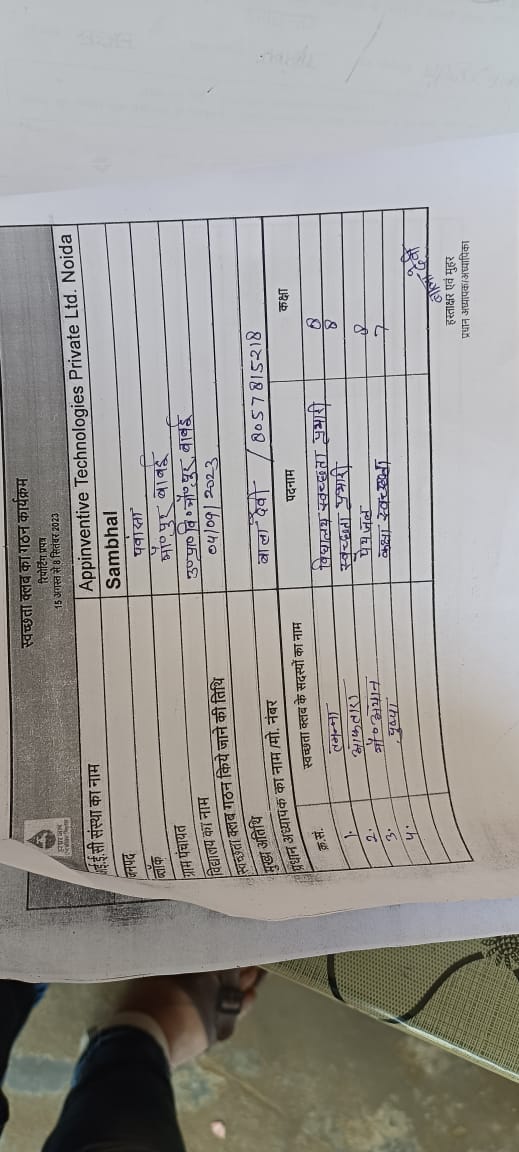 स्वच्छता क्लब का गठन कार्यक्रम
रिपोर्टिंग प्रपत्र
15 अगस्त से 8 सितंबर 2023
आई.ई.सी संस्था का नाम Appinventive Technologies Private Ltd. Noida
जनपद Sambhal
ब्लॉक पवासा
ग्राम पंचायत पुर
विद्यालय का नाम उ०प्रा०वि० पुर
स्वच्छता क्लब गठन किये जाने की तिथि 04/09/2023
मुख्य अतिथि
प्रधान अध्यापक का नाम /मो. नंबर बाला देवी / 8057815218
क्र.सं. स्वच्छता क्लब के सदस्यों का नाम पदनाम कक्षा
1. तमन्ना विद्यालय स्वच्छता प्रभारी 8
2. स्वच्छता प्रभारी 8
3. पेयजल 8
4. पुष्पा कक्षा स्वच्छता 7
बाला देवी
हस्ताक्षर एवं मुहर
प्रधान अध्यापक/अध्यापिका